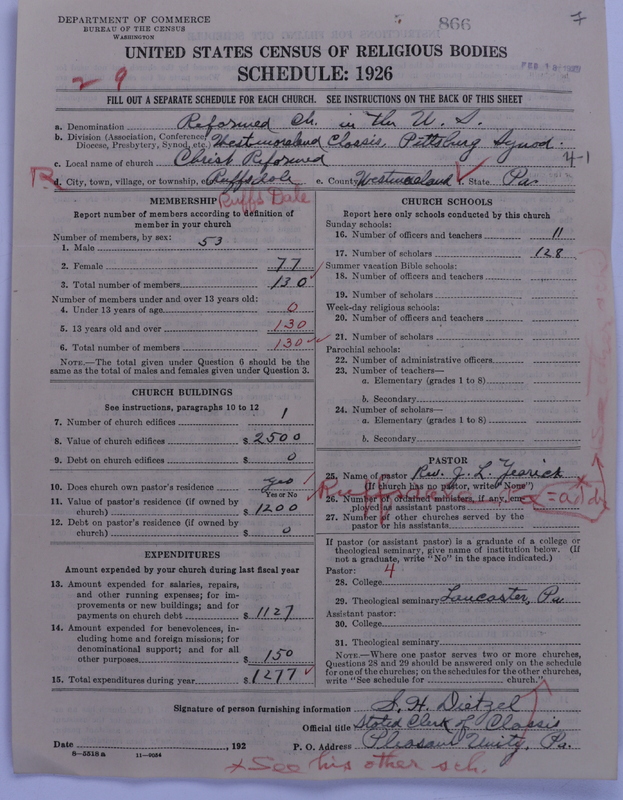 DEPARTMENT OF COMMERCE
BUREAU OF THE CENSUS
WASHINGTON
866
7
UNITED STATES CENSUS OF RELIGIOUS BODIES
SCHEDULE: 1926
29
FILL OUT A SEPARATE SCHEDULE FOR EACH CHURCH. SEE INSTRUCTIONS ON THE BACK OF THIS SHEET
a. Denomination Reformed Ch. in the U. S.
b. Division (Association, Conference, Diocese, Presbytery, Synod, etc.) Westmoreland Classis, Pittsburg Synod.
c. Local name of church Christ Reformed
4-1
R
d. City, town, village, or township, Ruffsdale e. County Westmoreland f. State Pa
Ruffs Dale
MEMBERSHIP
Report number of members according to definition of
member in your church
Number of members, by sex:
1. Male 53
2. Female 77
3. Total number of members 130
Number of members under and over 13 years old:
4. Under 13 years of age 0
5. 13 years old and over 130
6. Total number of members 130
NOTE.—The total given under Question 6 should be
same as the total of males and females given under Question 3.
CHURCH BUILDINGS
See instructions, paragraphs 10 to 12
7. Number of church edifices 1
8. Value of church edifices $ 2500
9. Debt on church edifices $ 0
10. Does church own pastor's residence yes
Yes or No
11. Value of pastor's residence (if owned by
church) $ 1200
12. Debt on pastor's residence (if owned by
church) $ 0
EXPENDITURES
Amount expended by your church during last fiscal year
13. Amount expended for salaries, repairs,
and other running expenses; for im-
provements or new buildings; and for
payments on church debt $ 1127
14. Amount expended for benevolences, in-
cluding home and foreign missions; for
denominational support; and for all
other purposes $ 150
15. Total expenditures during year $ 1277
CHURCH SCHOOLS
Report here only schools conducted by this church
Sunday schools:
16. Number of officers and teachers 11
17. Number of scholars 128
Summer vacation Bible schools:
18. Number of officers and teachers
19. Number of scholars
Week-day religious schools:
20. Number of officers and teachers
21. Number of scholars
Parochial schools:
22. Number of administrative officers
23. Number of teachers—
a. Elementary (grades 1 to 8)
b. Secondary
24. Number of scholars—
a. Elementary (grades 1 to 8)
b. Secondary
PASTOR
25. Name of pastor Rev. J. L. Yearick
(If church has no pastor, write "None")
26. Number of ordained ministers, if any, em-
ployed as assistant pastors
27. Number of other churches served by the
pastor or his assistants
If pastor (or assistant pastor) is a graduate of a college or
theological seminary, give name of institution below. (If
not a graduate, write "No" in the space indicated.)
Pastor: 4
28. College
29. Theological seminary Lancaster, Pa
Assistant pastor:
30. College
31. Theological seminary
NOTE.—Where one pastor serves two or more churches,
Questions 28 and 29 should be answered only on the schedule
for one of the churches; on the schedules for the other churches,
write "See schedule for church."
Signature of person furnishing information S. H. Dietzel
Official title Stated Clerk of Classis
Date , 192 P. O. Address Pleasant Unity, Pa.
8-5518a 11-9034
x See his other sch.